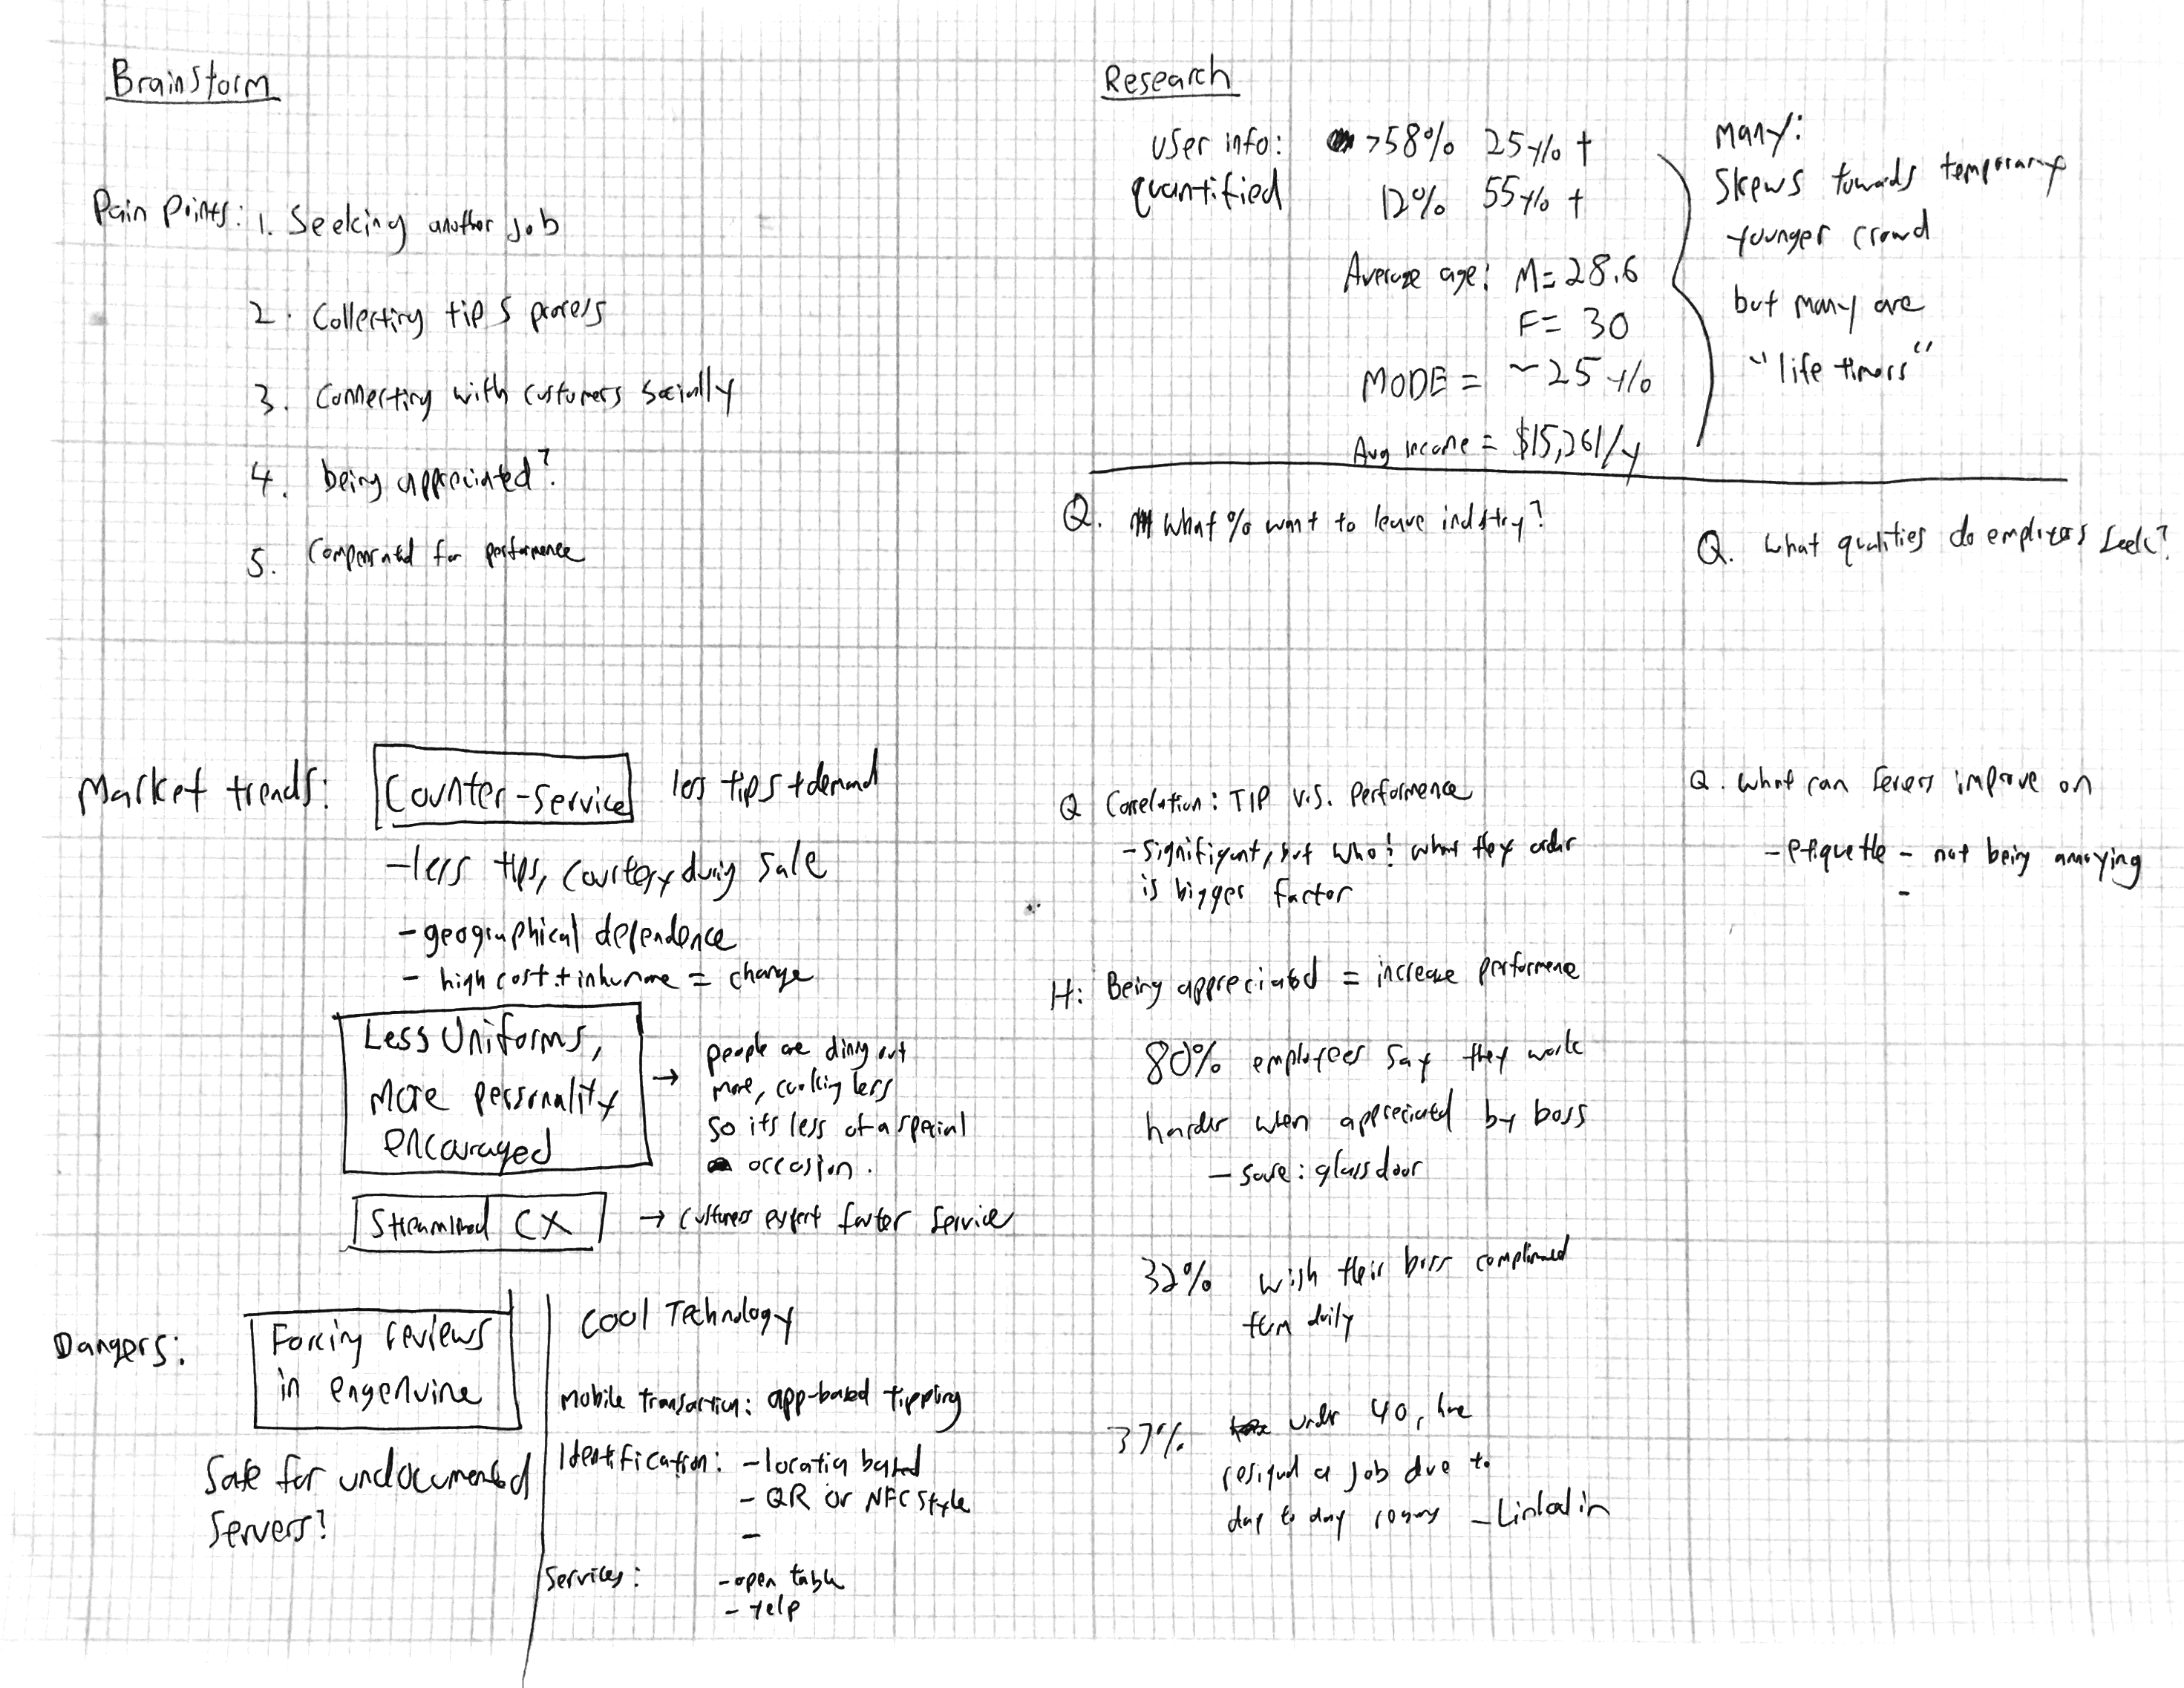 Brainstorm
Pain points: 1. Seeking another job
2. Collecting tips process
3. Connecting with customers socially
4. being appreciated?
5. Compensated for performence
Market trends: Counter-service less tips + demand
- less tips, courtesy during sale
- geographical dependence
- high cost + inhumane = change
Less Uniforms,
More personality
encouraged
→ people are dining out
more, cooking less
so its less of a special
occasion.
Streamlined CX → customers expect faster service
Dangers: Forcing reviews
in engenuine
Safe for undocumented
servers?
Cool Technology
Mobile transaction: app-based tipping
Identification: - location based
- QR or NFC style
-
Services: - open table
- yelp
Research
user info: >58% 25y/o +
quantified 12% 55y/o +
Average age: M= 28.6
F= 30
MODE = ~25 y/o
Avg income = $15,261/y
Many:
Skews towards temporary
younger crowd
but many are
"life timers"
Q. What % want to leave industry?
Q. What qualities do employers seek?
Q Correlation: TIP v.s. Performence
- signifigant, but who & what they order
is bigger factor
Q. What can servers improve on
- etiquette - not being annoying
-
H: Being appreciated = increase performence
80% employees say they work
harder when appreciated by boss
- source: glassdoor
32% wish their boss complimented
them daily
37% under 40, have
resigned a job due to
day to day - Linkedin